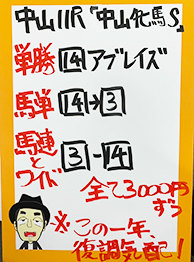 中山11R『中山牝馬S』
単勝 14 アブレイズ
馬単 14→3
馬連とワイド 3-14
全て3000円ずつ
※この一年、復調気配!